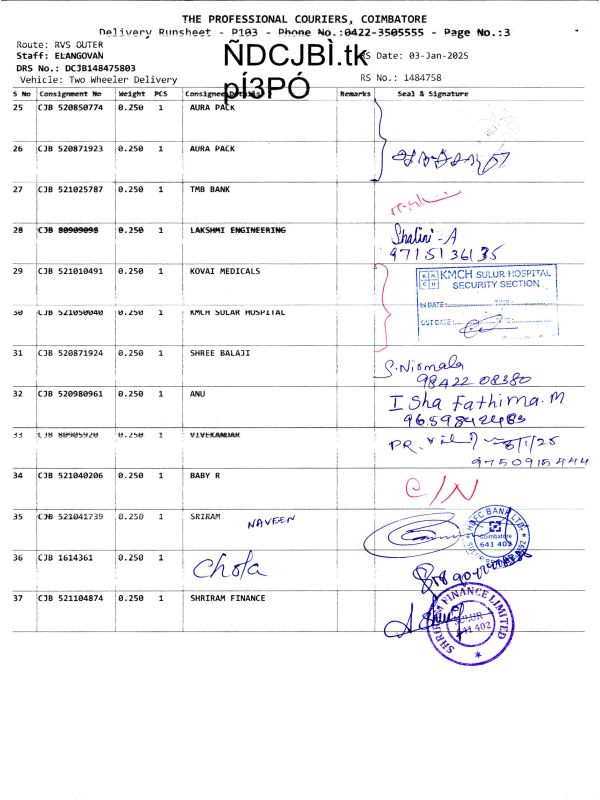 THE PROFESSIONAL COURIERS, COIMBATORE
Delivery Runsheet - P103 - Phone No.:0422-3505555 - Page No.:3
Route: RVS OUTER
Staff: ELANGOVAN
ÑDCJBÌ.tk
RS Date: 03-Jan-2025
DRS No.: DCJB148475803
pÍ3PÓ
Vehicle: Two Wheeler Delivery
RS No.: 1484758
S No Consignment No Weight PCS Consignee Details Remarks Seal & Signature
25 CJB 520850774 0.250 1 AURA PACK
26 CJB 520871923 0.250 1 AURA PACK
27 CJB 521025787 0.250 1 TMB BANK
28 CJB 80909098 0.250 1 LAKSHMI ENGINEERING Shalini-A
9715136135
29 CJB 521010491 0.250 1 KOVAI MEDICALS
KMCH SULUR HOSPITAL
SECURITY SECTION
IN DATE: TIME:
OUT DATE:
30 CJB 521050040 0.250 1 KMCH SULAR HOSPITAL
31 CJB 520871924 0.250 1 SHREE BALAJI
S.Nirmala
98422 08380
32 CJB 520980961 0.250 1 ANU
Isha Fathima.M
9659842483
33 CJB 80905920 0.250 1 VIVEKANDAR
PR.
9750915444
34 CJB 521040206 0.250 1 BABY R C/N
35 CJB 521041739 0.250 1 SRIRAM NAVEEN
HDFC BANK LTD.
Coimbatore
641 402
36 CJB 1614361 0.250 1 Chola
37 CJB 521104874 0.250 1 SHRIRAM FINANCE
SHRIRAM FINANCE LIMITED
SULUR
641 402